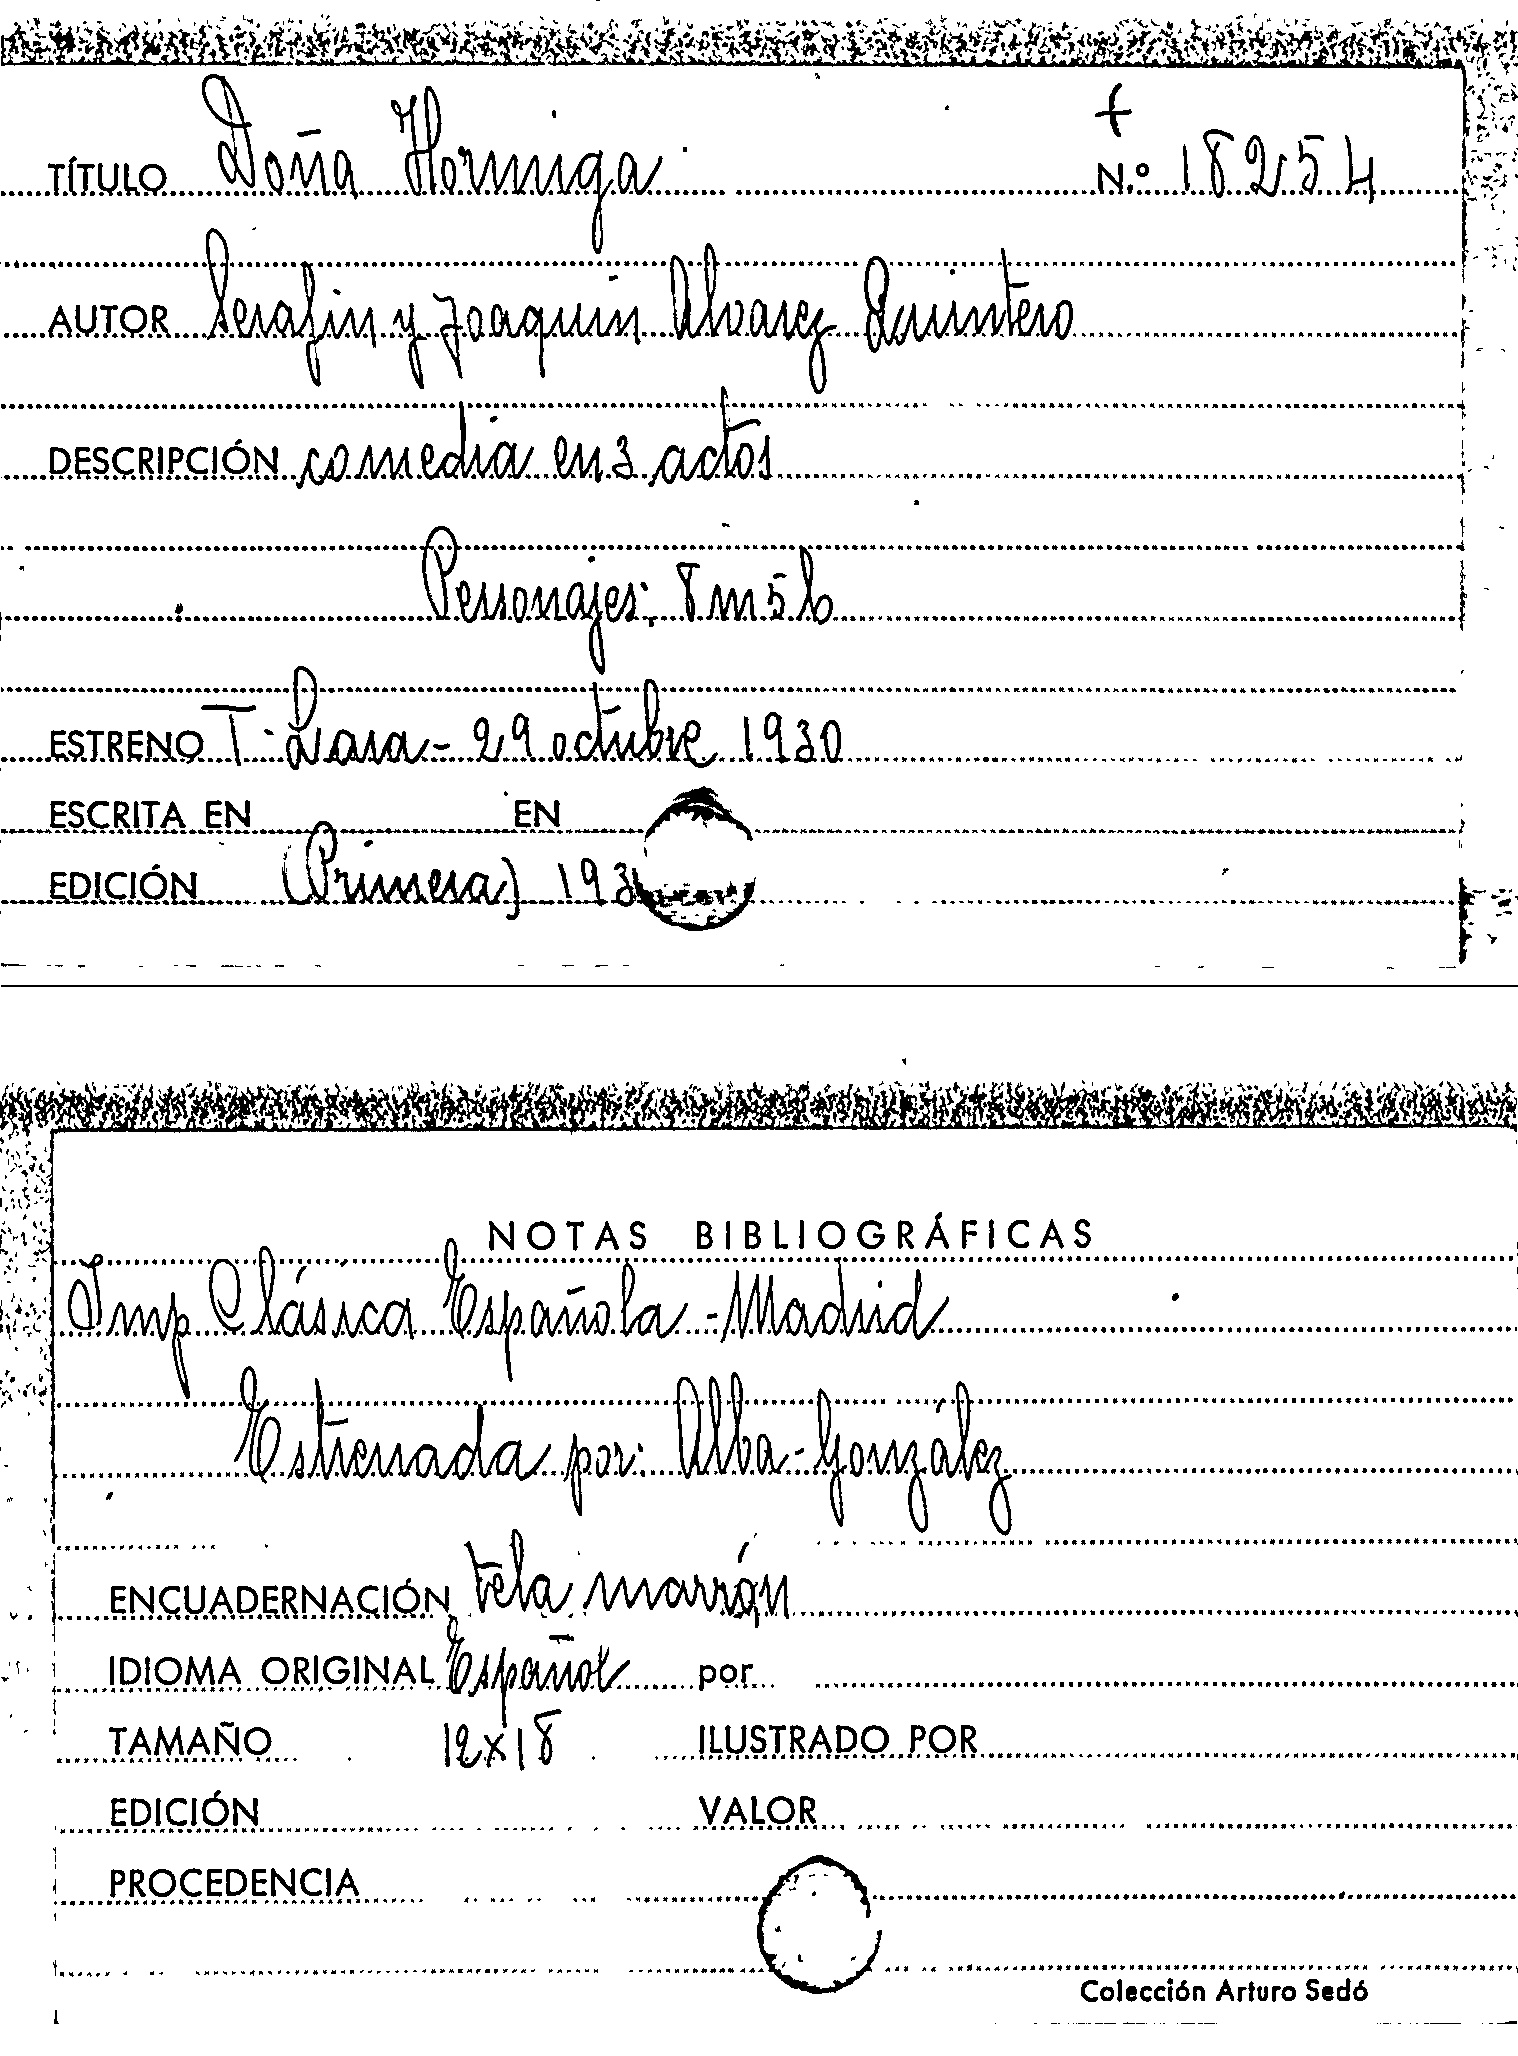 +
TÍTULO Doña Hormiga N.º 18254
AUTOR Serafin y Joaquin Alvarez Quintero
DESCRIPCIÓN comedia en 3 actos
Personajes: 8 m 5 h
ESTRENO T. Lara - 29 octubre 1930
ESCRITA EN EN
EDICIÓN (Primera) 193
NOTAS BIBLIOGRÁFICAS
Imp Clásica Española - Madrid
Estrenada por: Alba - González
ENCUADERNACIÓN tela marrón
IDIOMA ORIGINAL Español por
TAMAÑO 12x18 ILUSTRADO POR
EDICIÓN VALOR
PROCEDENCIA
Colección Arturo Sedó